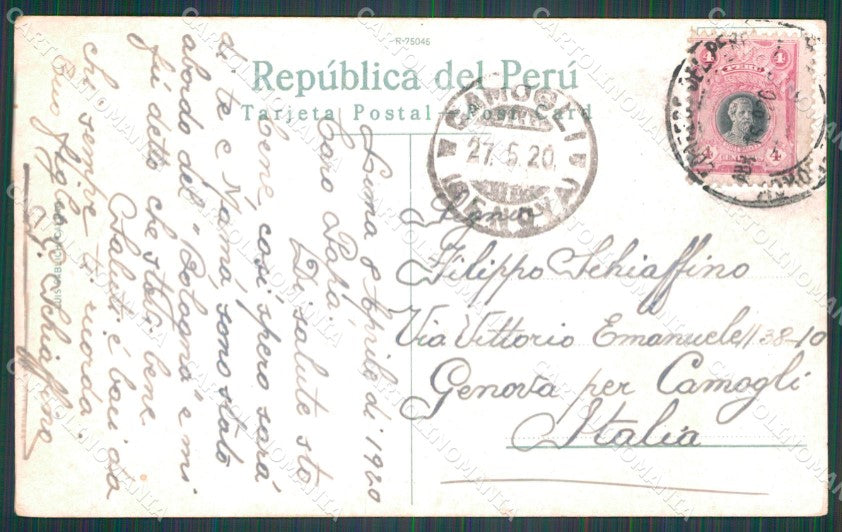 R-75045
República del Perú
Tarjeta Postal - Post Card
4 4
4 4
CAMOGLI
27.5.20.
(GENOVA)
Lima 8 Aprile di 1920
Caro Papá.
Di salute sto
bene, cosi spero sará
di te e Mamá, sono stato
abordo del "Bologna" e mi
fú detto che stata bene
Saluti é baci da
chi sempre ti ricorda
Tuo figlio
Schiaffino
Signor
Filippo Schiaffino
Via Vittorio Emanuele 1138-10
Genova per Camogli
Italia
CARTOLINOMANIA